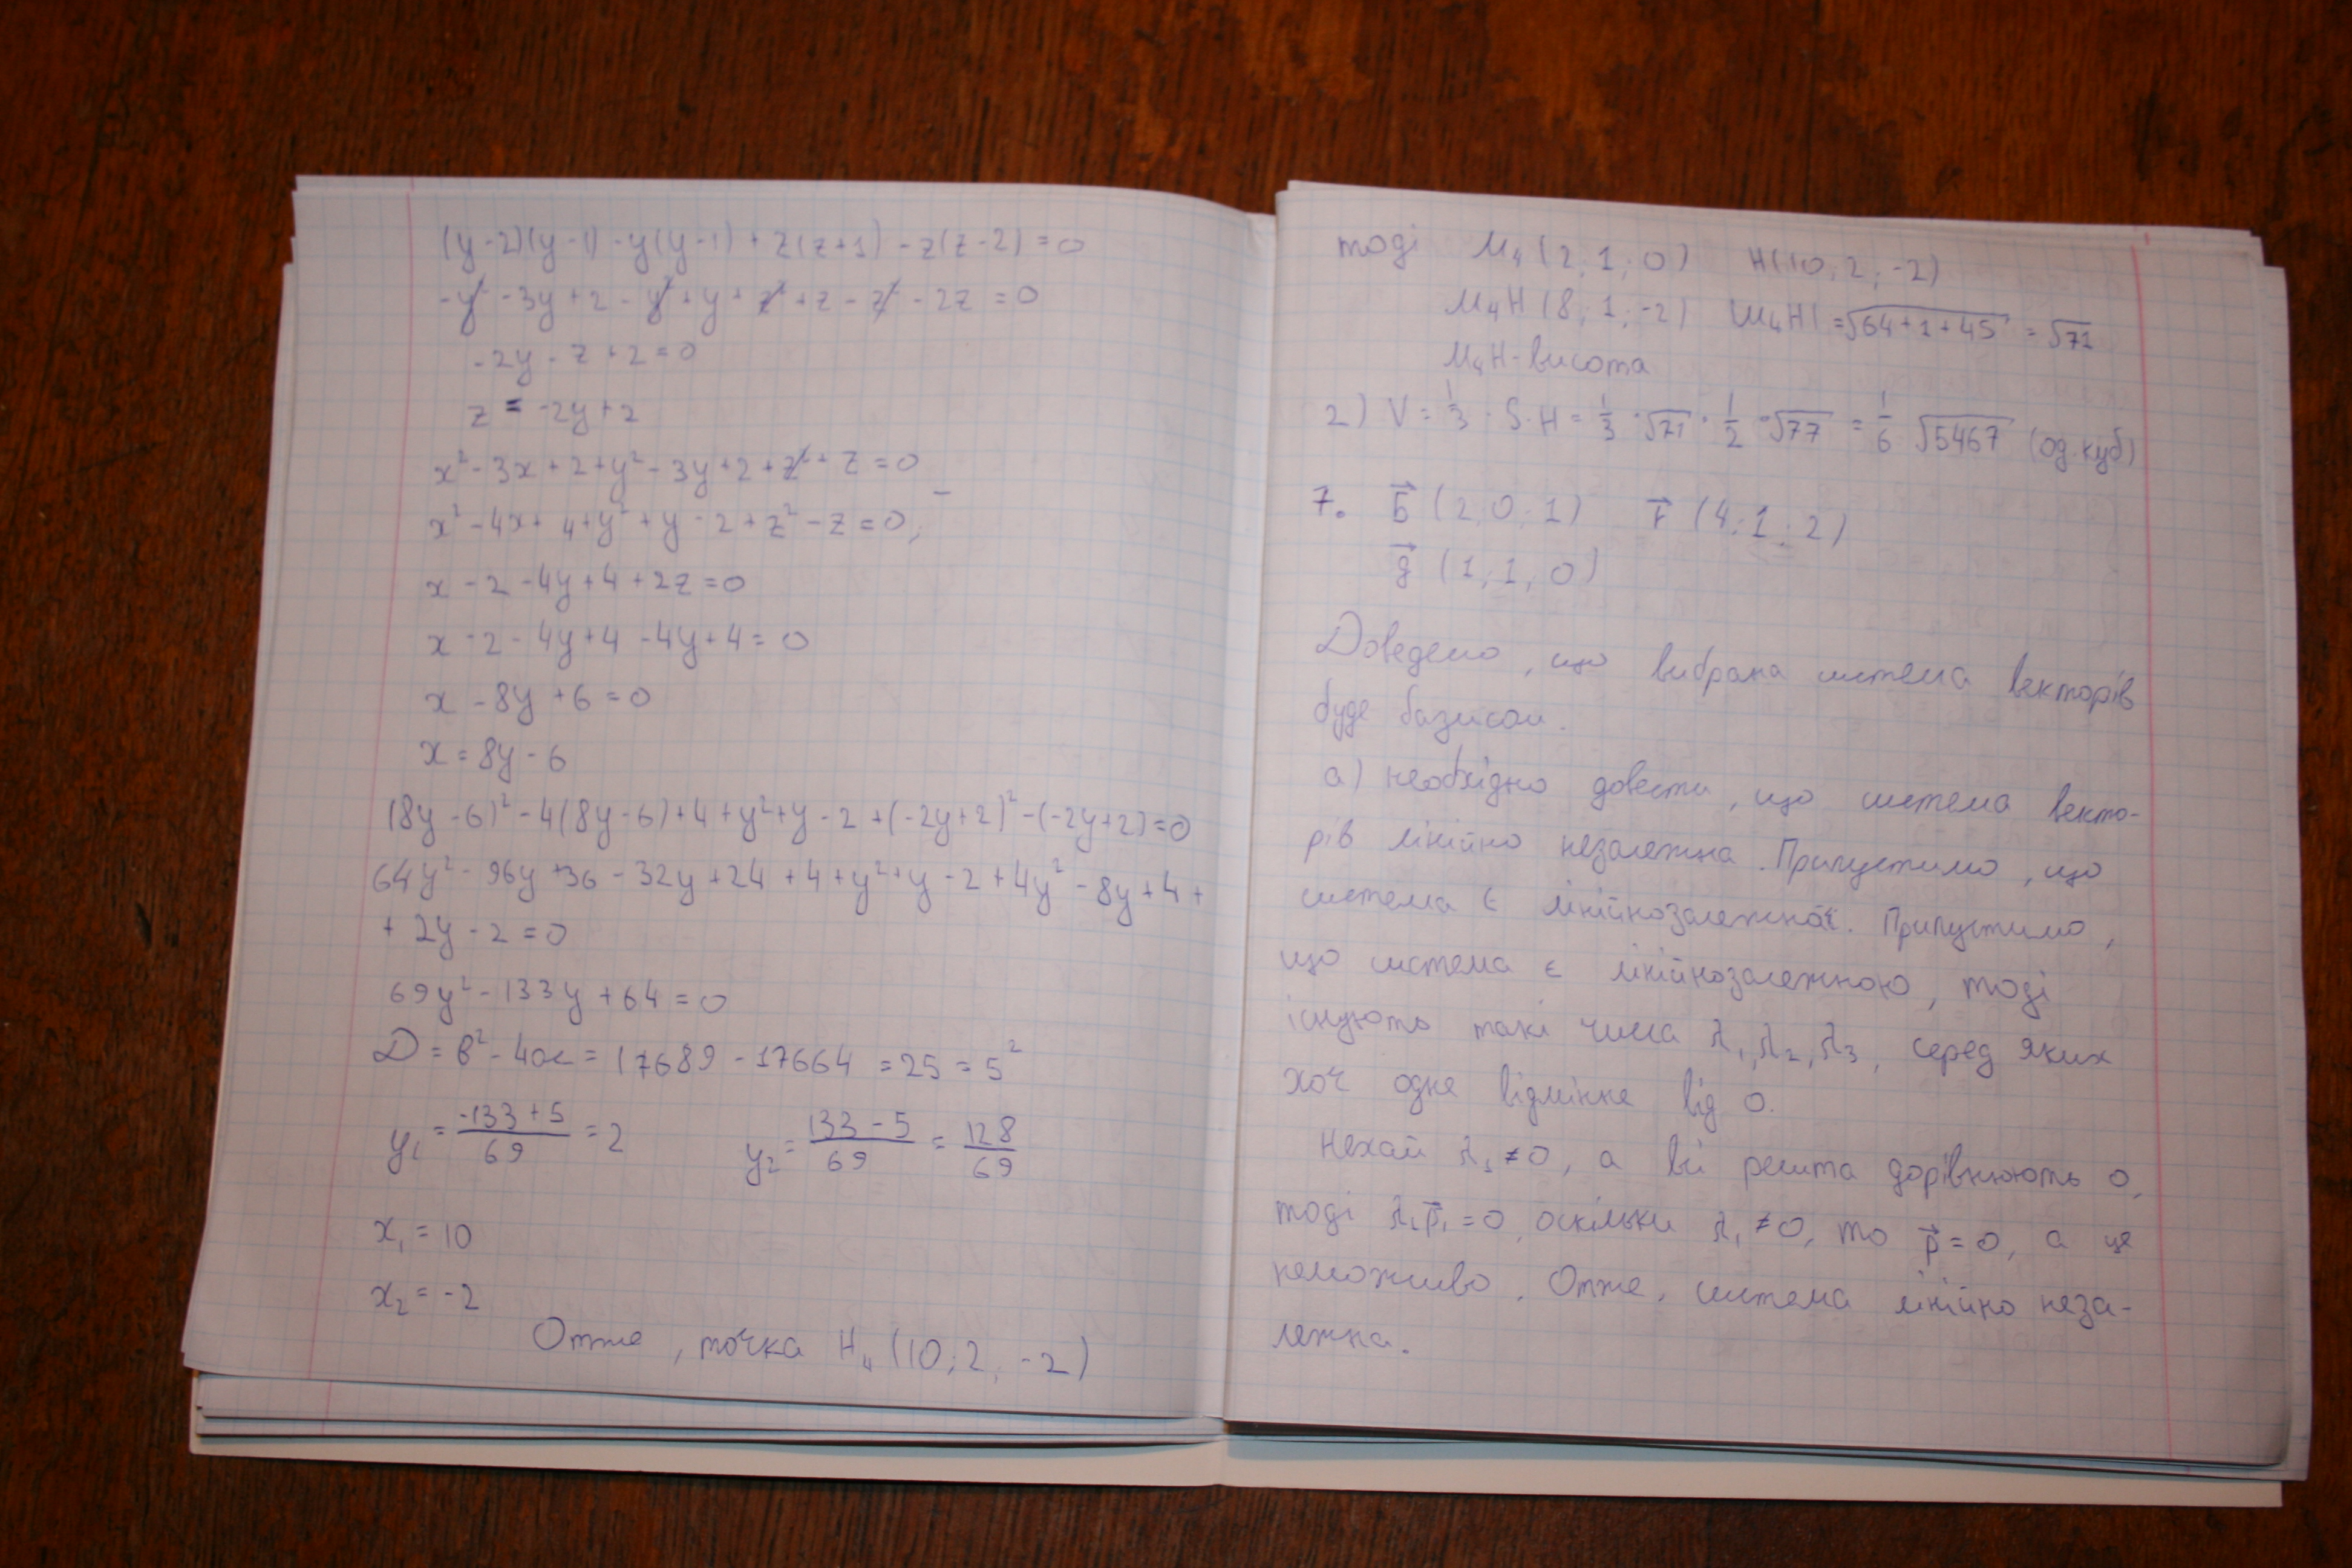 (y-2)(y-1)-y(y-1)+z(z+1)-z(z-2)=0
-y²-3y+2-y²+y+z²+z-z²-2z=0
-2y-z+2=0
z=-2y+2
x²-3x+2+y²-3y+2+z²+z=0
x²-4x+4+y²+y-2+z²-z=0;
x-2-4y+4+2z=0
x-2-4y+4-4y+4=0
x-8y+6=0
x=8y-6
(8y-6)²-4(8y-6)+4+y²+y-2+(-2y+2)²-(-2y+2)=0
64y²-96y+36-32y+24+4+y²+y-2+4y²-8y+4+
+2y-2=0
69y²-133y+64=0
D=b²-4ac=17689-17664=25=5²
y₁=(-133+5)/69=2 y₂=(133-5)/69=128/69
x₁=10
x₂=-2
Отже, точка H₄(10;2,-2)
тоді M₄(2;1;0) H(10;2;-2)
M₄H(8;1;-2) |M₄H|=√(64+1+45)=√71
M₄H-висота
2) V=1/3·S·H=1/3·√71·1/2·√77=1/6√5467 (од.куб)
7. Б⃗(2,0;1) Г⃗(4;1;2)
g⃗(1;1,0)
Доведемо, що вибрана система векторів
буде базисом.
а) необхідно довести, що система векто-
рів лінійно незалежна. Припустимо, що
система є лінійнозалежною. Припустимо,
що система є лінійнозалежною, тоді
існують такі числа λ₁,λ₂,λ₃, серед яких
хоч одне відмінне від 0.
Нехай λ₁≠0, а всі решта дорівнюють 0,
тоді λ₁p⃗₁=0, оскільки λ₁≠0, то p⃗=0, а це
неможливо. Отже, система лінійно неза-
лежна.